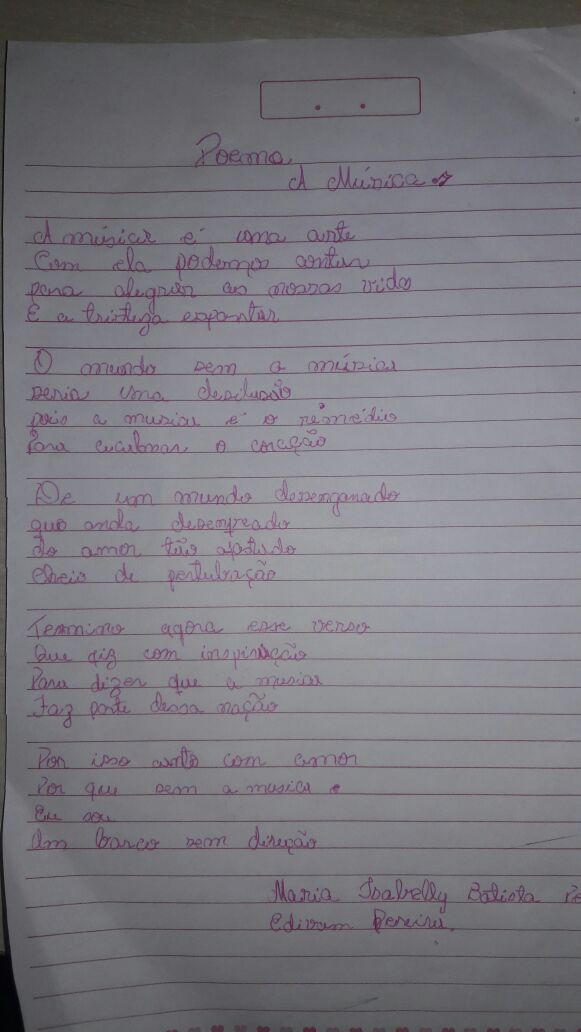 Poema
A Música
A música é uma arte
Com ela podemos cantar
para alegrar as nossas vida
E a tristeza espantar
O mundo sem a música
seria uma desilusão
pois a musica é o remédio
Para o coração
De um mundo desenganado
que anda desenfreado
do amor tão
cheio de perturbação
Termino agora esse verso
Que fiz com inspiração
Para dizer que a musica
Faz parte dessa nação
Por isso canto com amor
Por que sem a musica
Eu sou
Um barco sem direção
Maria Isabelly Batista
Edivam Pereira.